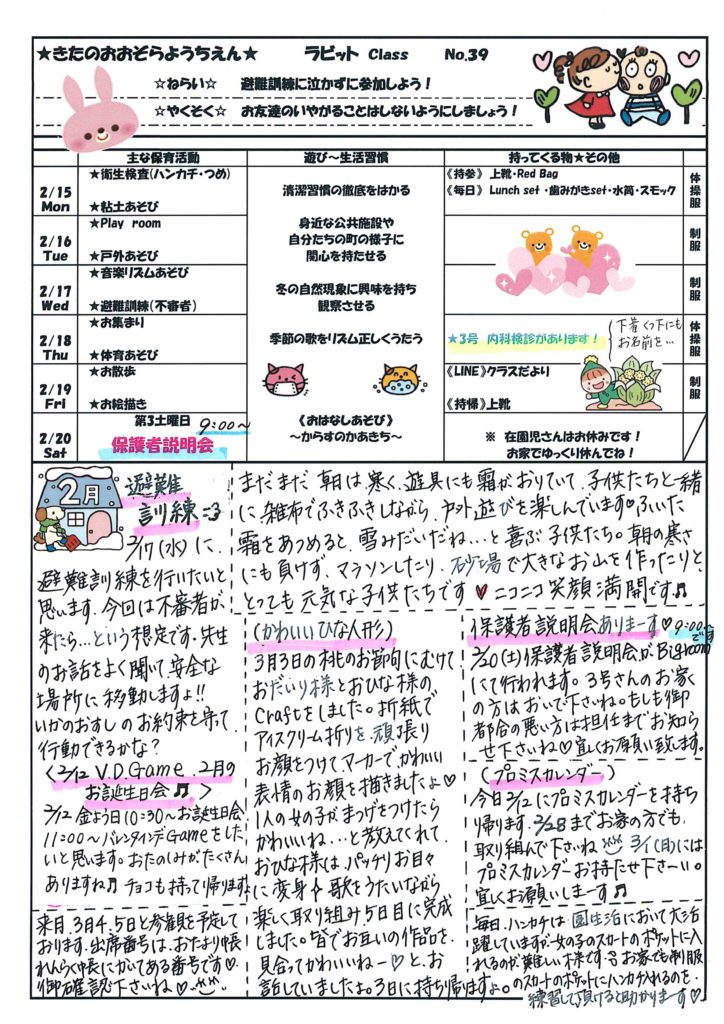 ★きたのおおぞらようちえん★ ラビット Class No.39
☆ねらい☆ 避難訓練に泣かずに参加しよう！
☆やくそく☆ お友達のいやがることはしないようにしましょう！
主な保育活動 遊び～生活習慣 持ってくる物★その他
2/15
Mon
★衛生検査(ハンカチ・つめ)
★粘土あそび
清潔習慣の徹底をはかる
《持参》上靴・Red Bag
《毎日》Lunch set・歯みがきset・水筒・スモック
体操服
2/16
Tue
★Play room
★戸外あそび
身近な公共施設や
自分たちの町の様子に
関心を持たせる
制服
2/17
Wed
★音楽リズムあそび
★避難訓練(不審者)
冬の自然現象に興味を持ち
観察させる
制服
2/18
Thu
★お集まり
★体育あそび
季節の歌をリズム正しくうたう
★3号 内科検診があります！
下着くつ下にも
お名前を…
体操服
2/19
Fri
★お散歩
★お絵描き
《LINE》クラスだより
《持帰》上靴
制服
2/20
Sat
第3土曜日 9:00～
保護者説明会
《おはなしあそび》
～からすのかあきち～
※ 在園児さんはお休みです！
お家でゆっくり休んでね！
2月
避難
訓練
2/17(水)に、
避難訓練を行いたいと
思います。今回は不審者が
来たら…という想定です。先生
のお話をよく聞いて安全な
場所に移動しますよ!!
いかのおすし のお約束を守って
行動できるかな？
まだまだ朝は寒く、遊具にも霜がおりていて、子供たちと一緒
に、雑布でふきふきしながら、戸外遊びを楽しんでいます♡ふいた
霜をあつめると、雪みだいだね…と喜ぶ子供たち。朝の寒さ
にも負けず、マラソンしたり、砂場で大きなお山を作ったりと、
とっても元気な子供たちです♥ニコニコ笑顔満開です♫
(かわいいひな人形)
3月3日の桃のお節句にむけて
おだいり様とおひな様の
Craftをしました。折紙で
アイスクリーム折りを頑張り
お顔をつけて、マーカーでかわいい
表情のお顔を描きましたよ♡
1人の女の子がまつげをつけたら
かわいいね…と教えてくれて、
おひな様は、パッチリお目々
に変身♪歌をうたいながら
楽しく取り組み5日目に完成
しました。皆でお互いの作品を
見合ってかわいいねー♡と、お
話していましたよ。3日に持ち帰りますよ。
保護者説明会ありまーす♡9:00～です
2/20(土)保護者説明会が、Big room
にて行われます。3号さんのお家
の方はおいで下さいね。もしも御
都合の悪い方は担任までお知ら
せ下さいね♡宜しくお願い致します。
(プロミスカレンダー)
今日2/12にプロミスカレンダーを持ち
帰ります。2/28までお家の方でも、
取り組んで下さいね 3/1(月)には
プロミスカレンダーお持たせ下さーい。
宜しくお願いしまーす♫
〈2/12 V.D.Game 2月の
お誕生日会♫〉
2/12 金よう日10:30～お誕生日会
11:00～バレンタインデGameをした
いと思います。おたのしみがたくさん
ありますね♪チョコも持って帰ります
来月、3月4.5日と参観を予定して
おります。出席番号は、おたより帳
れんらく帳にかいてある番号です♡
御確認下さいね♡
毎日、ハンカチは園生活において大活
躍していますが、女の子のスカートのポケットに入
れるのが難しい様です。お家でも制服
のスカートのポケットにハンカチ入れるのを、
練習して頂けると助かりまーす♡